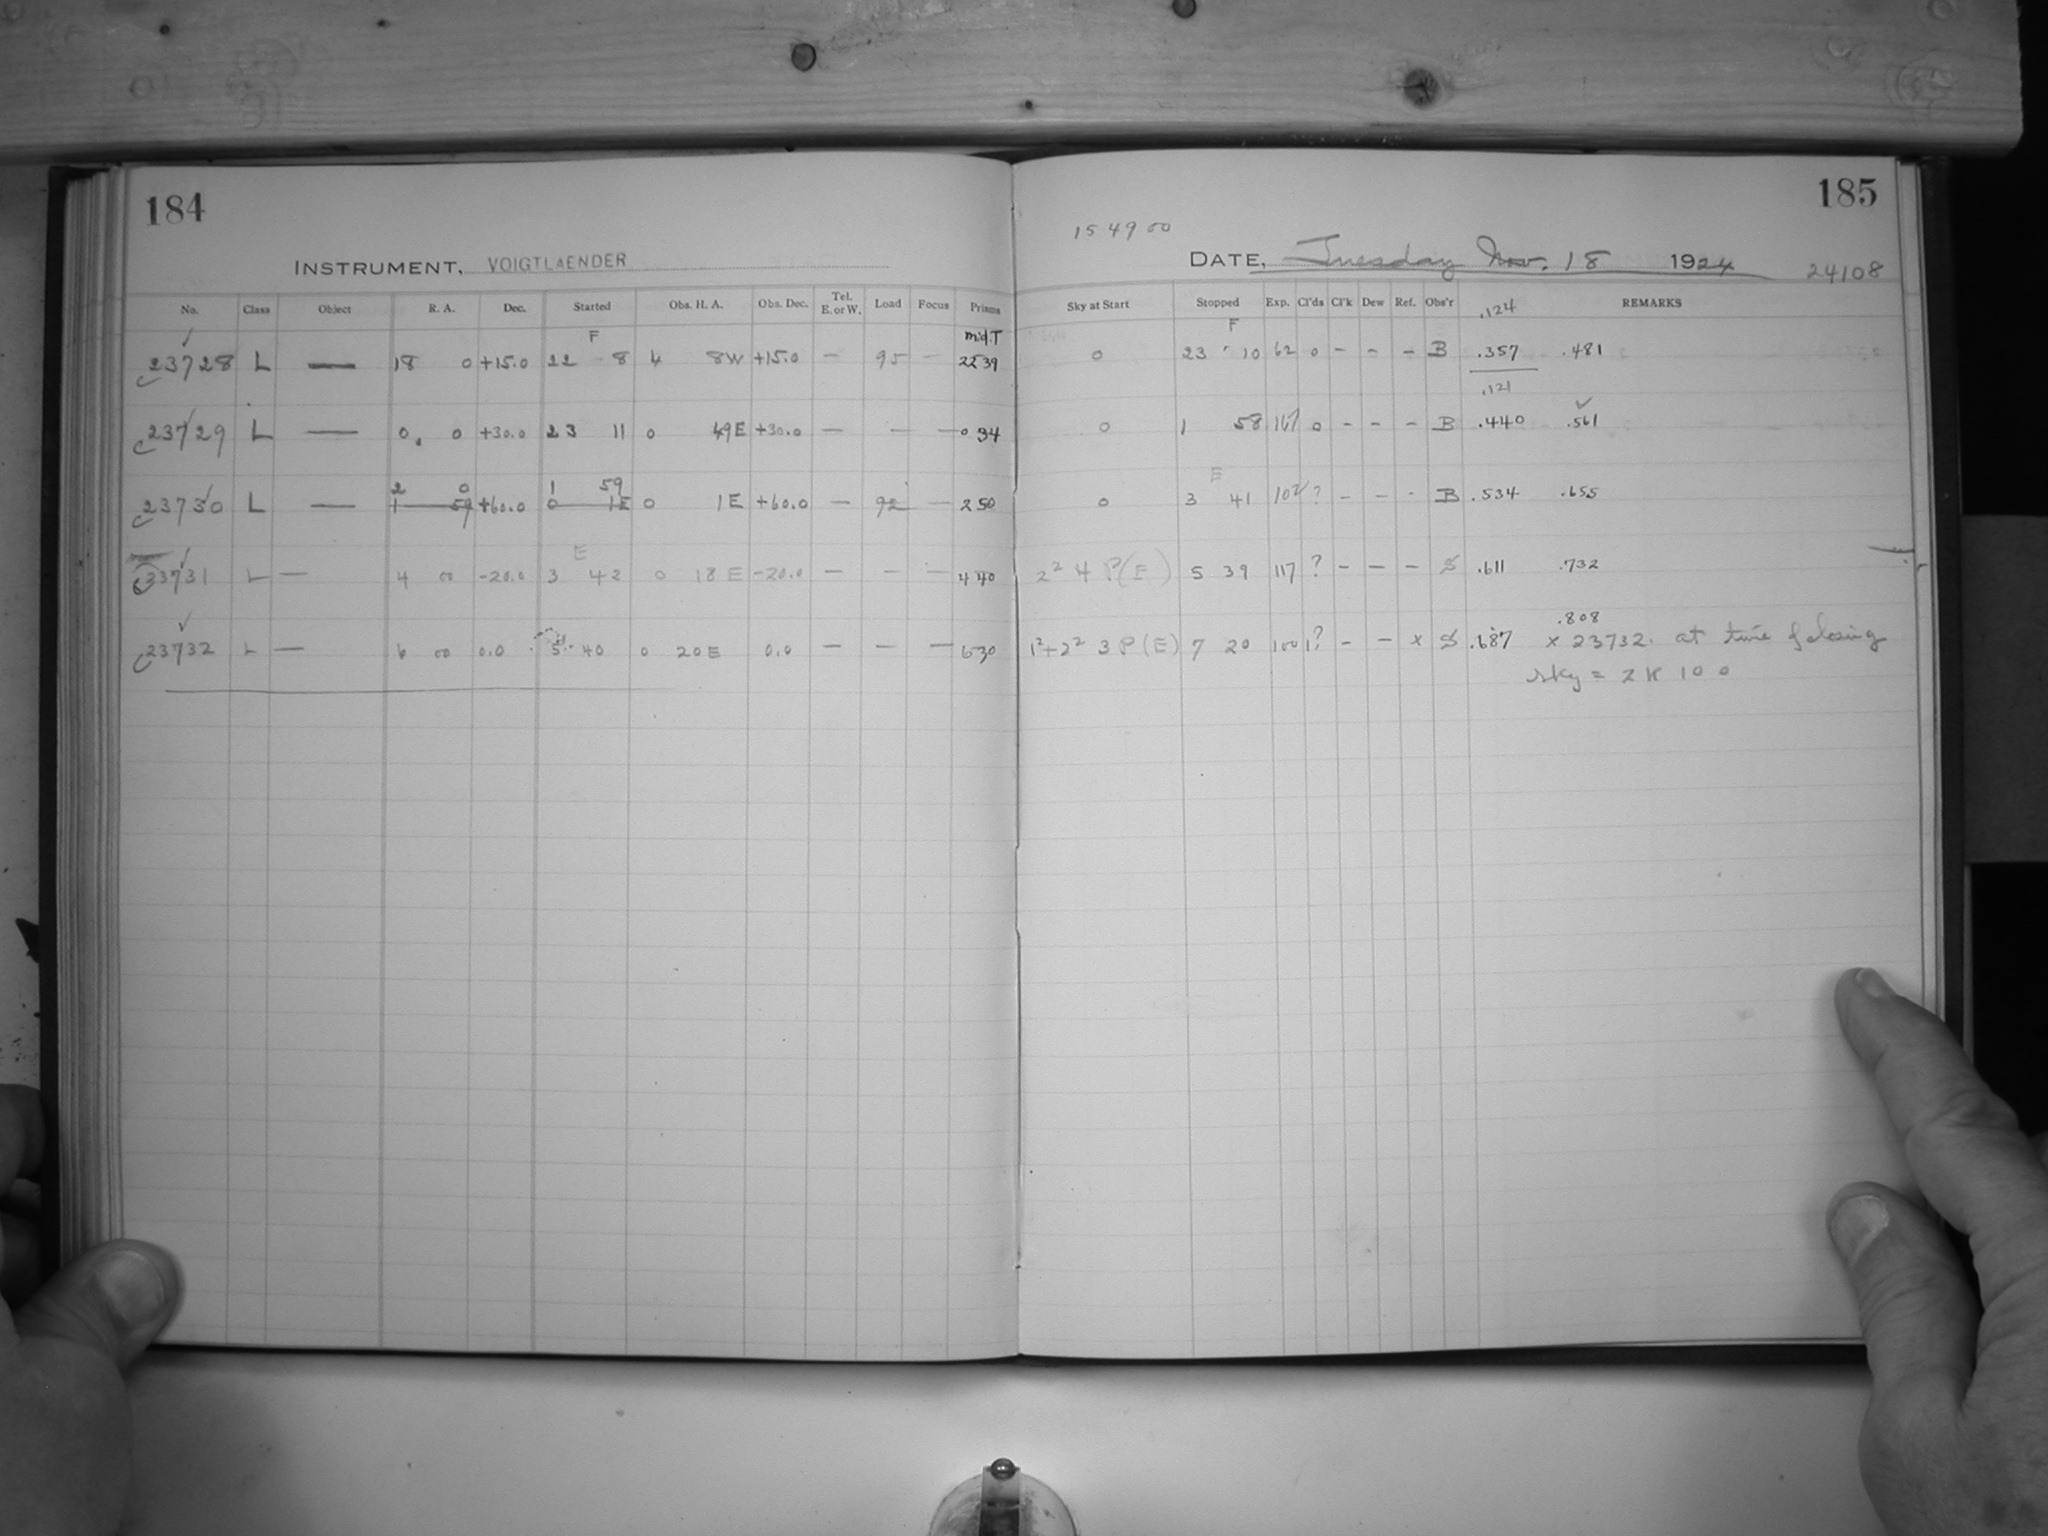 184
INSTRUMENT, VOIGTLAENDER
No. Class Object R. A. Dec. Started Obs. H. A. Obs. Dec. Tel. E. or W. Load Focus Prisms
F mid.T
c23728 L — 18 0 +15.0 22 8 4 8W +15.0 — 95 — 2239
c23729 L — 0 0 +30.0 23 11 0 49E +30.0 — — — 0 34
2 0 1 59
c23730 L — 1 59 +60.0 0 1E 0 1E +60.0 — 92 — 2 50
E
c23731 L — 4 00 -20.0 3 42 0 18E -20.0 — — — 4 40
c23732 L — 6 00 0.0 5 40 0 20E 0.0 — — — 6 30
185
15 49 00
DATE, Tuesday Nov. 18 1924 24108
Sky at Start Stopped Exp. Cl'ds Cl'k Dew Ref. Obs'r REMARKS
F .124
0 23 10 62 0 - - - B .357 .481
.121
0 1 58 167 0 - - - B .440 .561
E
0 3 41 102 ? - - - B .534 .655
2² 4 P(E) 5 39 117 ? - - - S .611 .732
.808
1²+2² 3 P(E) 7 20 100 1? - - x S .687 x 23732. at time of closing
sky = 2 K 10 0